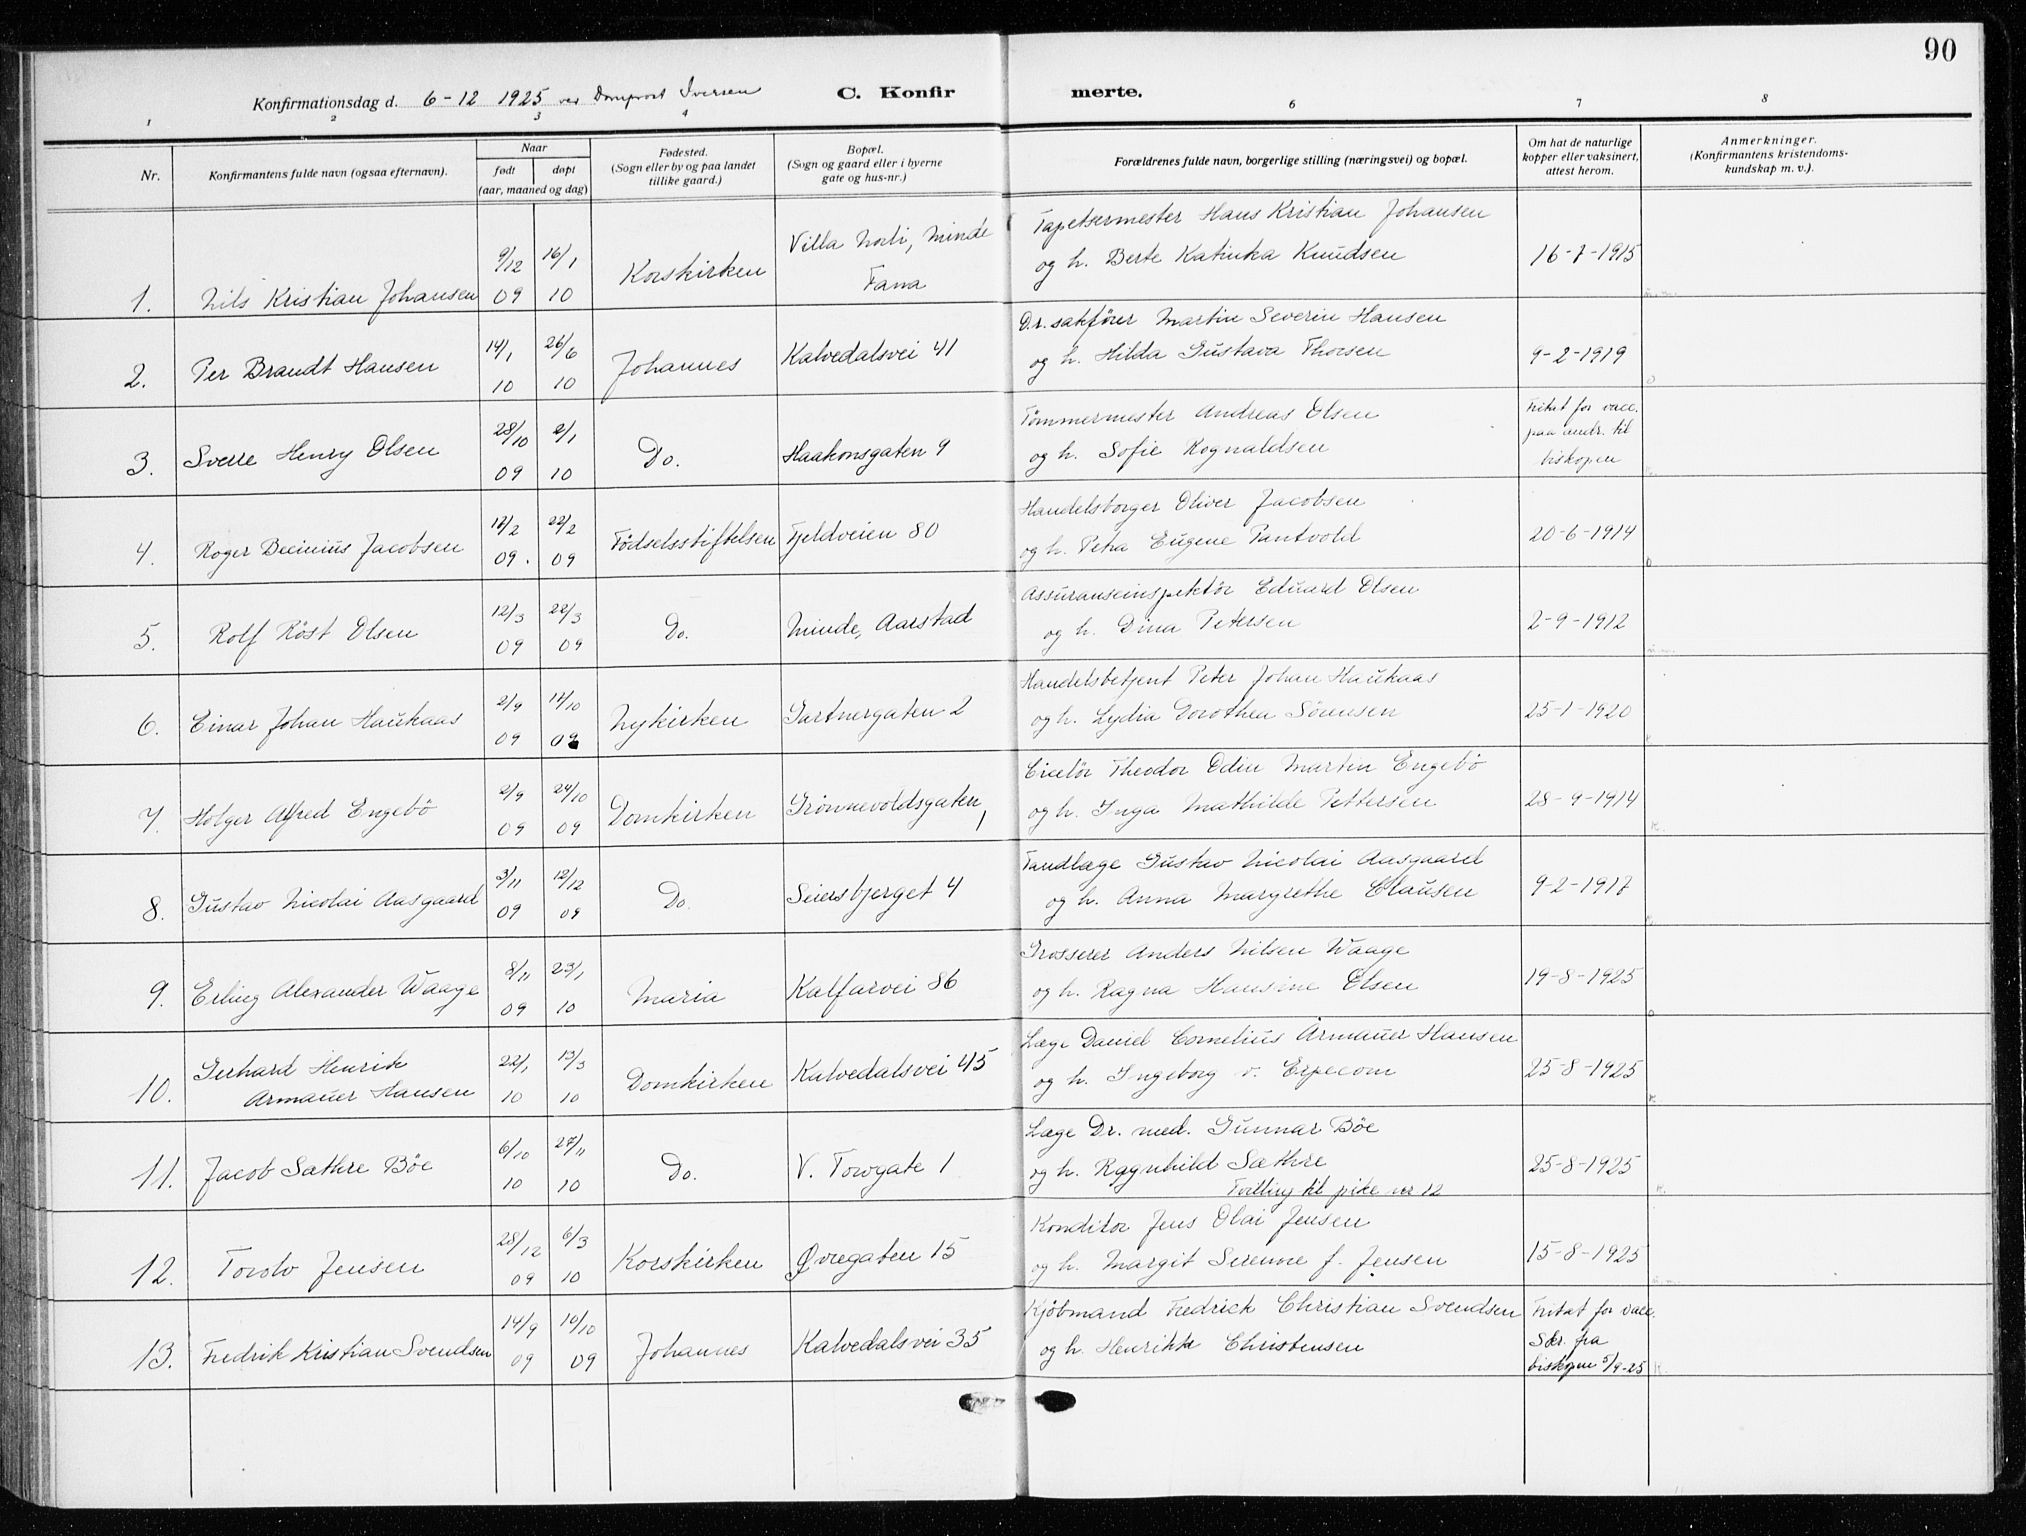 90
Konfirmationsdag d. 6-12 1925 ved Domprost Iversen
C. Konfirmerte.
1 2 3 4 6 7 8
Nr.
Konfirmantens fulde navn (ogsaa efternavn).
Naar
født døpt
(aar, maaned og dag)
Fødested.
(Sogn eller by og paa landet
tillike gaard.)
Bopæl.
(Sogn og gaard eller i byerne
gate og hus-nr.)
Forældrenes fulde navn, borgerlige stilling (næringsvei) og bopæl.
Om hat de naturlige
kopper eller vaksinert,
attest herom.
Anmerkninger.
(Konfirmantens kristendoms-
kundskap m. v.).
1. Nils Kristian Johansen 9/12 09 16/1 10 Korskirken
Villa Norli, Minde
Fana
Tapetsermester Hans Kristian Johansen
og h. Berte Katinka Knudsen
16-7-1915
2. Per Brandt Hansen 14/1 10 26/6 10 Johannes Kalvedalsvei 41
O.r.sakfører Martin Severin Hansen
og h. Hilda Gustava Thorsen
9-2-1919
3. Sverre Henry Olsen 28/10 09 2/1 10 Do. Haakonsgaten 9
Tømmermester Andreas Olsen
og h. Sofie Rognaldsen
Fritat for vacc.
paa andr. til
biskopen
4. Roger Jacobsen 12/2 09. 22/2 09 Fødselsstiftelsen Fjeldveien 80
Handelsborger Oliver Jacobsen
og h. Petra Eugene
20-6-1914
5. Rolf Röst Olsen 12/3 09 22/3 09 Do. Minde, Aarstad
Assuranseinspektör Edvard Olsen
og h. Dina Petersen
2-9-1912
6. Einar Johan Haukaas 2/9 09 17/10 09 Nykirken Gartnergaten 2
Handelsbetjent Peter Johan Haukaas
og h. Lydia Dorothea Sörensen
25-1-1920
7. Holger Alfred Engebö 2/9 09 24/10 09 Domkirken Grönnevoldsgaten 1
Theodor Odin Martin Engebö
og h. Inga Mathilde Pettersen
28-9-1914
8. Gustav Nicolai Aasgaard 3/11 09 12/12 09 Do. Seiersbjerget 4
Tandlæge Gustav Nicolai Aasgaard
og h. Anna Margrethe Clausen
9-2-1917
9. Erling Alexander Waage 8/11 09 23/1 10 Maria Kalfarvei 86
Grosserer Anders Nilsen Waage
og h. Ragna Hansine Olsen
19-8-1925
10. Gerhard Henrik
Armauer Hansen 22/1 10 13/3 10 Domkirken Kalvedalsvei 45
Læge Daniel Cornelius Armauer Hansen
og h. Ingeborg v. Erpecom
25-8-1925
11. Jacob Sæthre Böe 6/10 10 27/11 10 Do. V. Torvgate 1
Læge Dr. med. Gunnar Böe
og h. Ragnhild Sæthre
Tvilling til pike nr 12
25-8-1925
12. Tordv Jensen 28/12 09 6/3 10 Korskirken Øvregaten 15
Konditor Jens Olai Jensen
og h. Margit Serenne f. Jensen
15-8-1925
13. Fredrik Kristian Svendsen 14/9 09 10/10 09 Johannes Kalvedalsvei 35
Kjøbmand Fredrick Christian Svendsen
og h. Henrikke Christensen
Fritat for vacc.
Skr. fra
biskopen 5/9-25